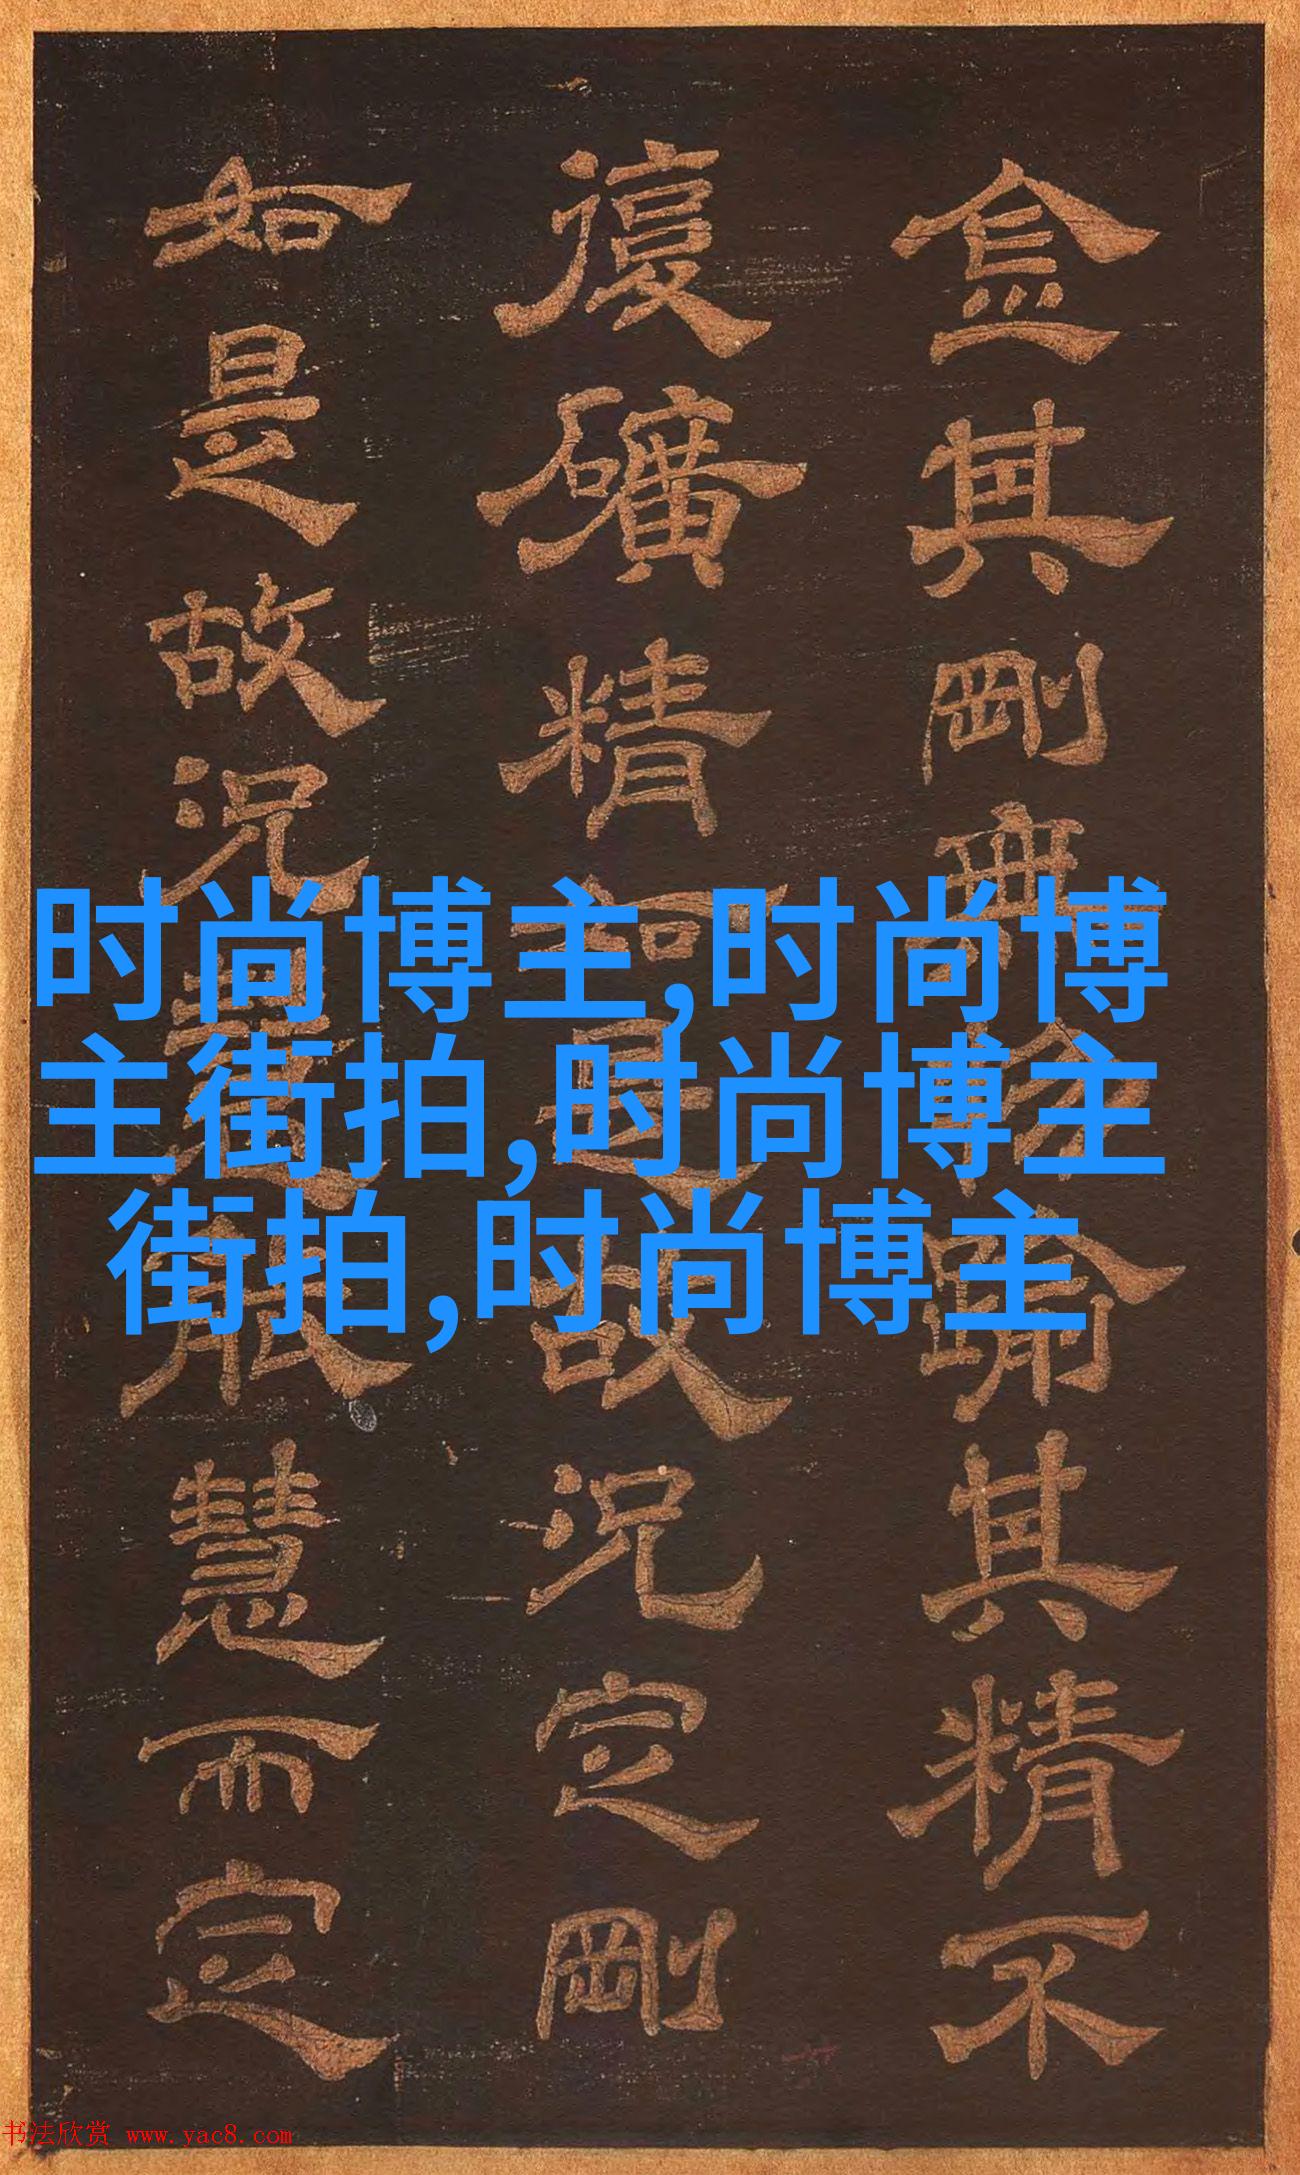 金其剛無物踰其精不
復礦精如是故況定剛
如是故況般慧而定
时尚博主,时尚博
主街拍,时尚博主
街拍,时尚博主
书法欣赏 www.yac8.com